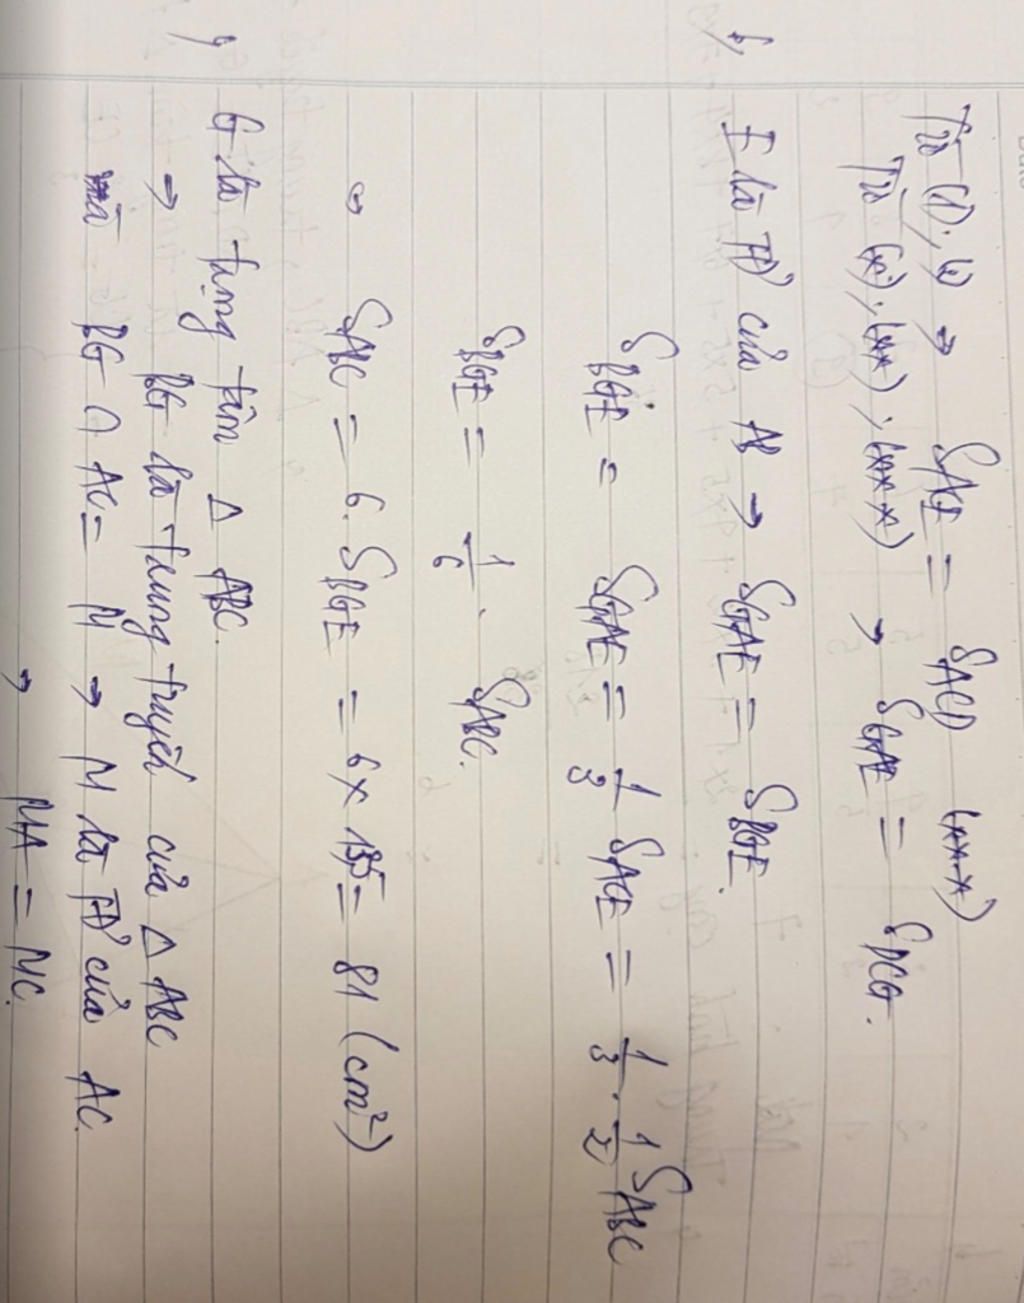 Từ (1); (2) → SACE = SACD (***)
Từ (*); (**); (***) → SGAE = SDCG.
b, E là TĐ của AB → SGAE = SBGE.
SBGE = SGAE = 1/3 SACE = 1/3 . 1/2 SABC
SBGE = 1/6 . SABC.
→ SABC = 6. SBGE = 6 x 13,5 = 81 (cm²)
G là trọng tâm Δ ABC.
→ BG là trung tuyến của Δ ABC
mà BG ∩ AC = M → M là TĐ của AC.
→ MA = MC.